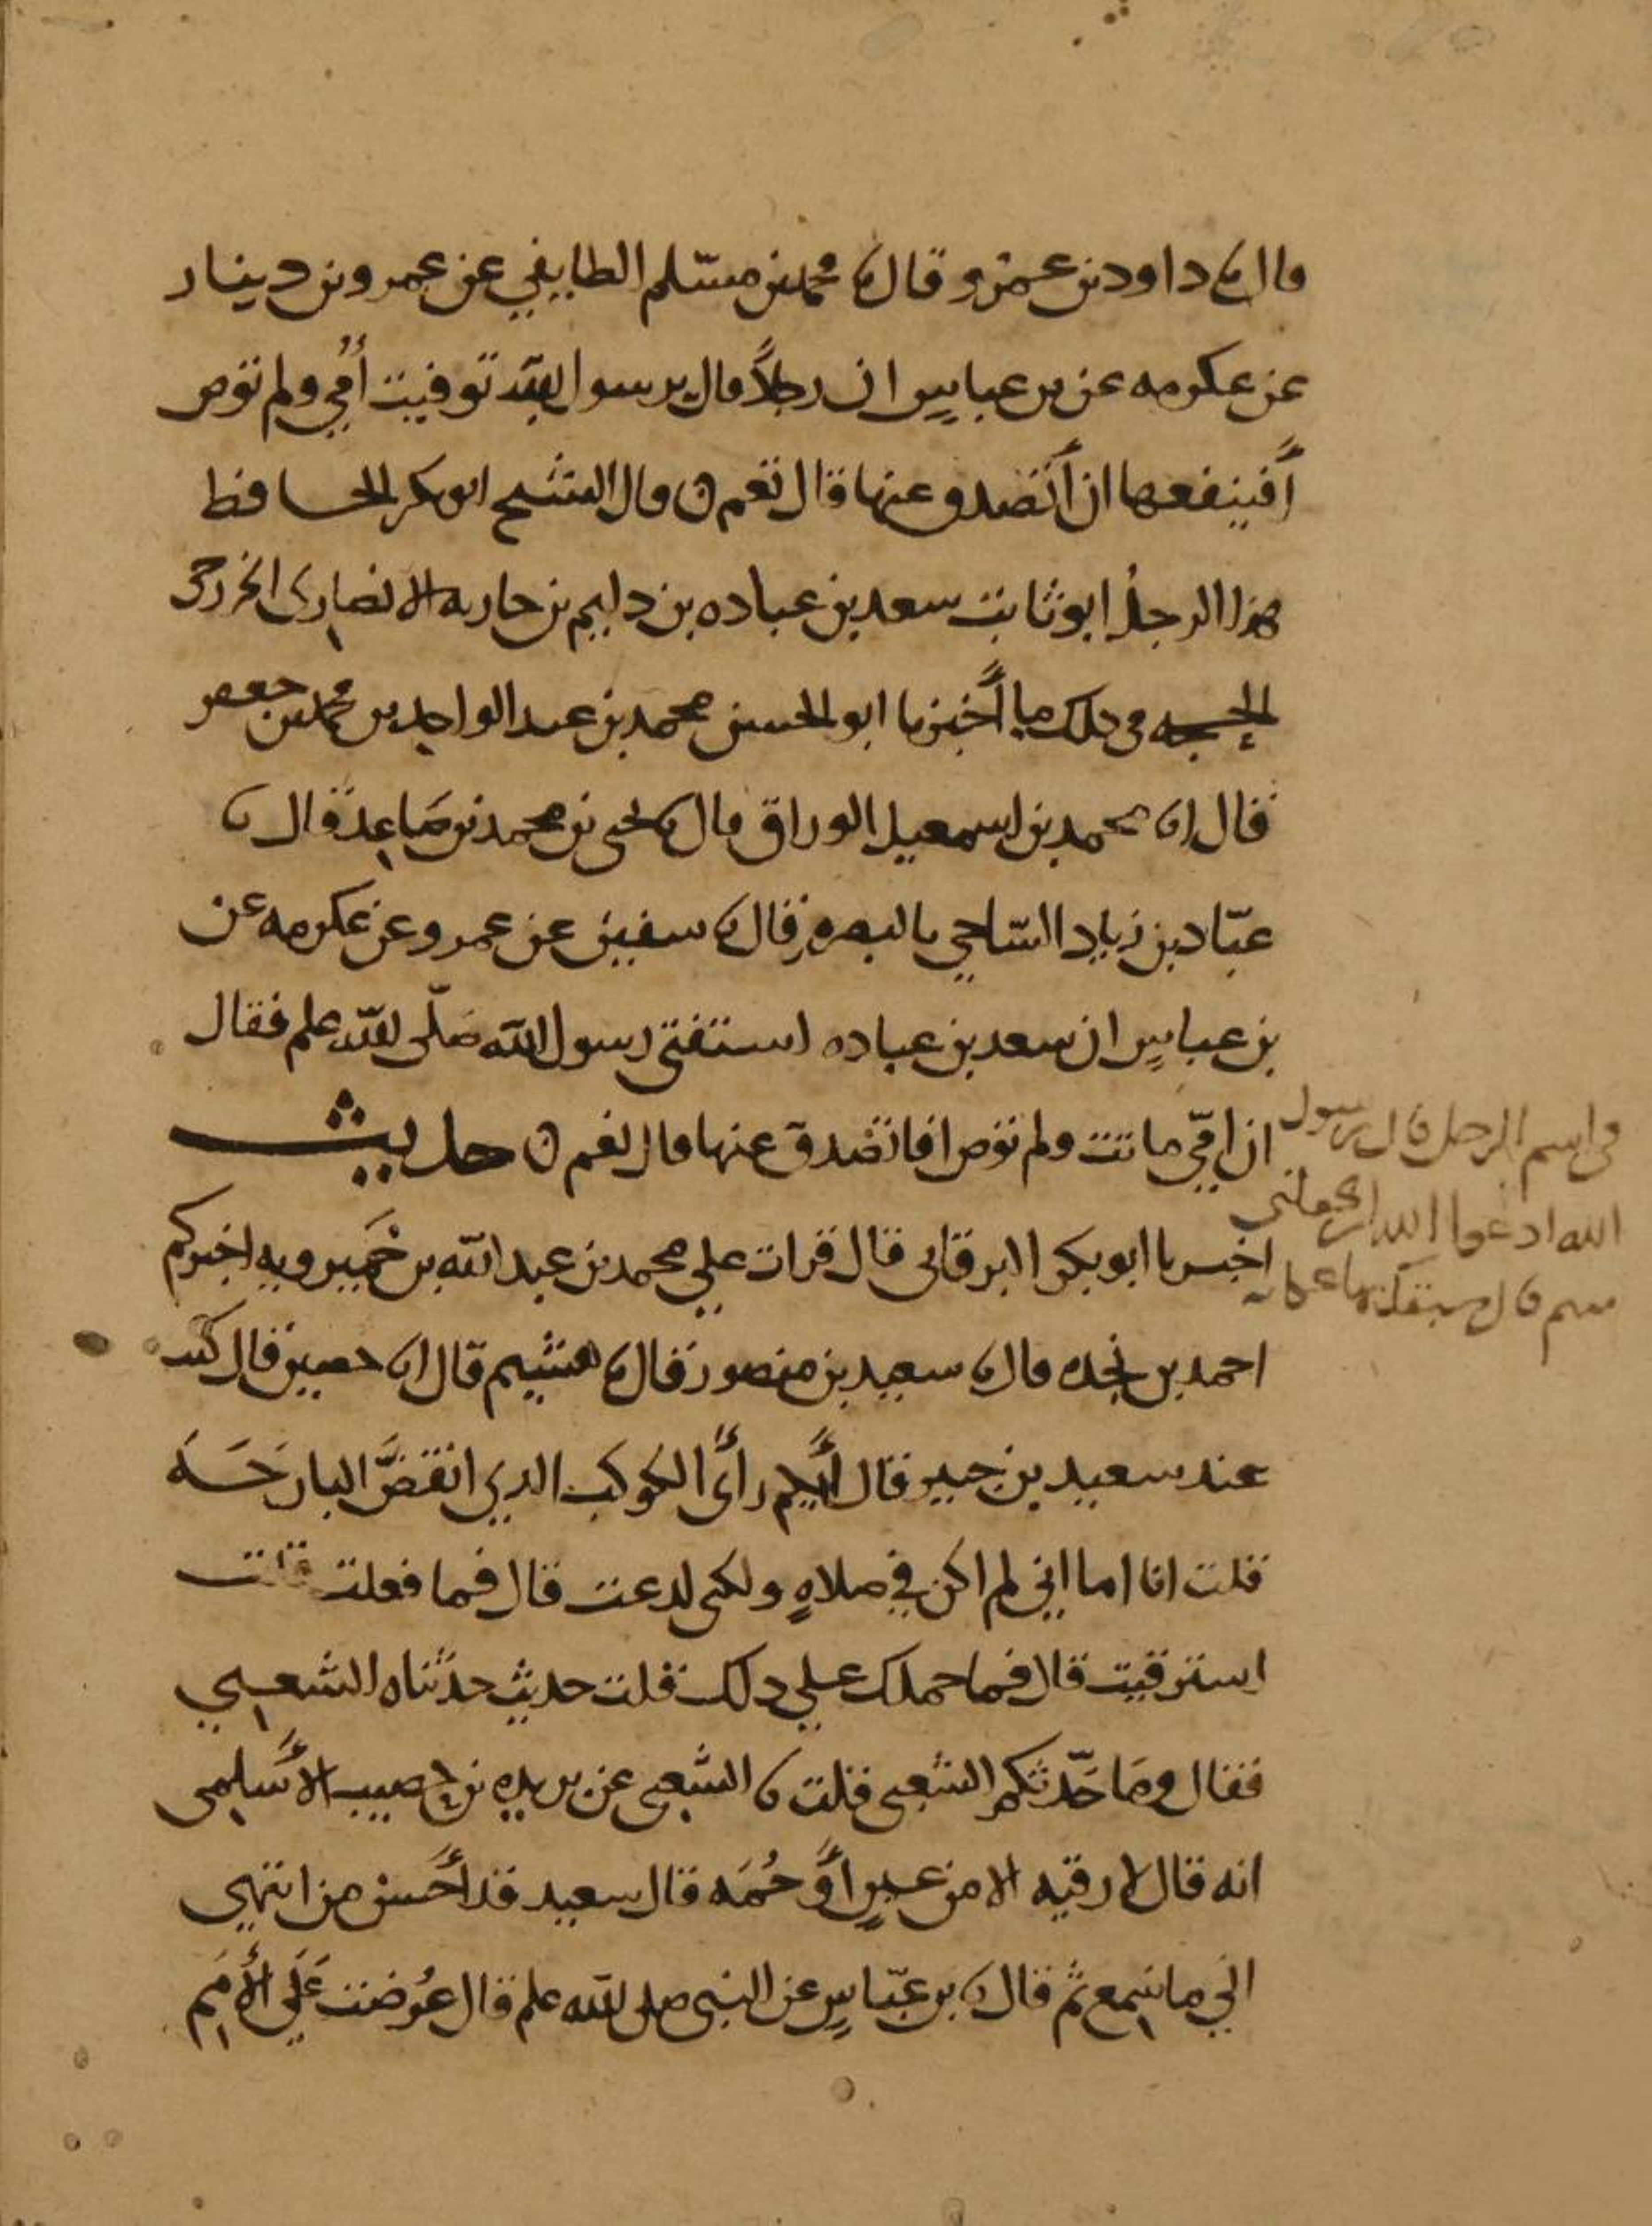 قال نا داود بن عمرو قال نا محمد بن مسلم الطايفي عن عمرو بن دينار
عن عكرمه عن بن عباس ان رجلاً قال يرسول الله توفيت أمي ولم توص
أفينفعها ان أتصدق عنها قال نعم ن قال الشيخ ابو بكر الحافظ
هذا الرجل ابو ثابت سعد بن عباده بن دليم بن حارثه الانصاري الخزرجي
الحجه في ذلك ما أخبرنا ابو الحسن محمد بن عبد الواحد بن محمد بن جعفر
قال انا محمد بن اسمعيل الوراق قال نا يحيى بن محمد بن صاعد قال نا
عبّاد بن زياد السّاجي بالبصره قال نا سفين عن عمرو عن عكرمه عن
بن عباس ان سعد بن عباده استفتى رسول الله صلّى الله علم فقال
ان امّي ماتت ولم توص افاتصدق عنها قال نعم ن حديث
في اسم الرجل قال يرسول
الله ادعوا الله ان يجعلني
منهم قال سبقك بها عكاشه
اخبرنا ابو بكر البرقاني قال قرات علي محمد بن عبد الله بن خَميرويه اخبركم
احمد بن نجده قال نا سعيد بن منصور قال نا هشيم قال انا حصين قال كنت
عند سعيد بن جبير فقال أيكم رأى الكوكب الذي انقضَّ البارحَة
قلت انا اما اني لم اكن في صلاةٍ ولكني لدغت قال فما فعلت قلت
استرقيت قال فما حملك علي ذلك قلت حديث حدثناه الشعبي
فقال وما حَدّثكم الشعبي قلت نا الشّعبي عن بريده بن حصيب الأسلمي
انه قال لا رقيه الا من عينٍ أو حُمَه قال سعيد قد أحسن من انتهى
الي ما سمع ثم قال نا بن عبّاس عن النبي صلى الله علم قال عُرضت عَلَي الأمَم